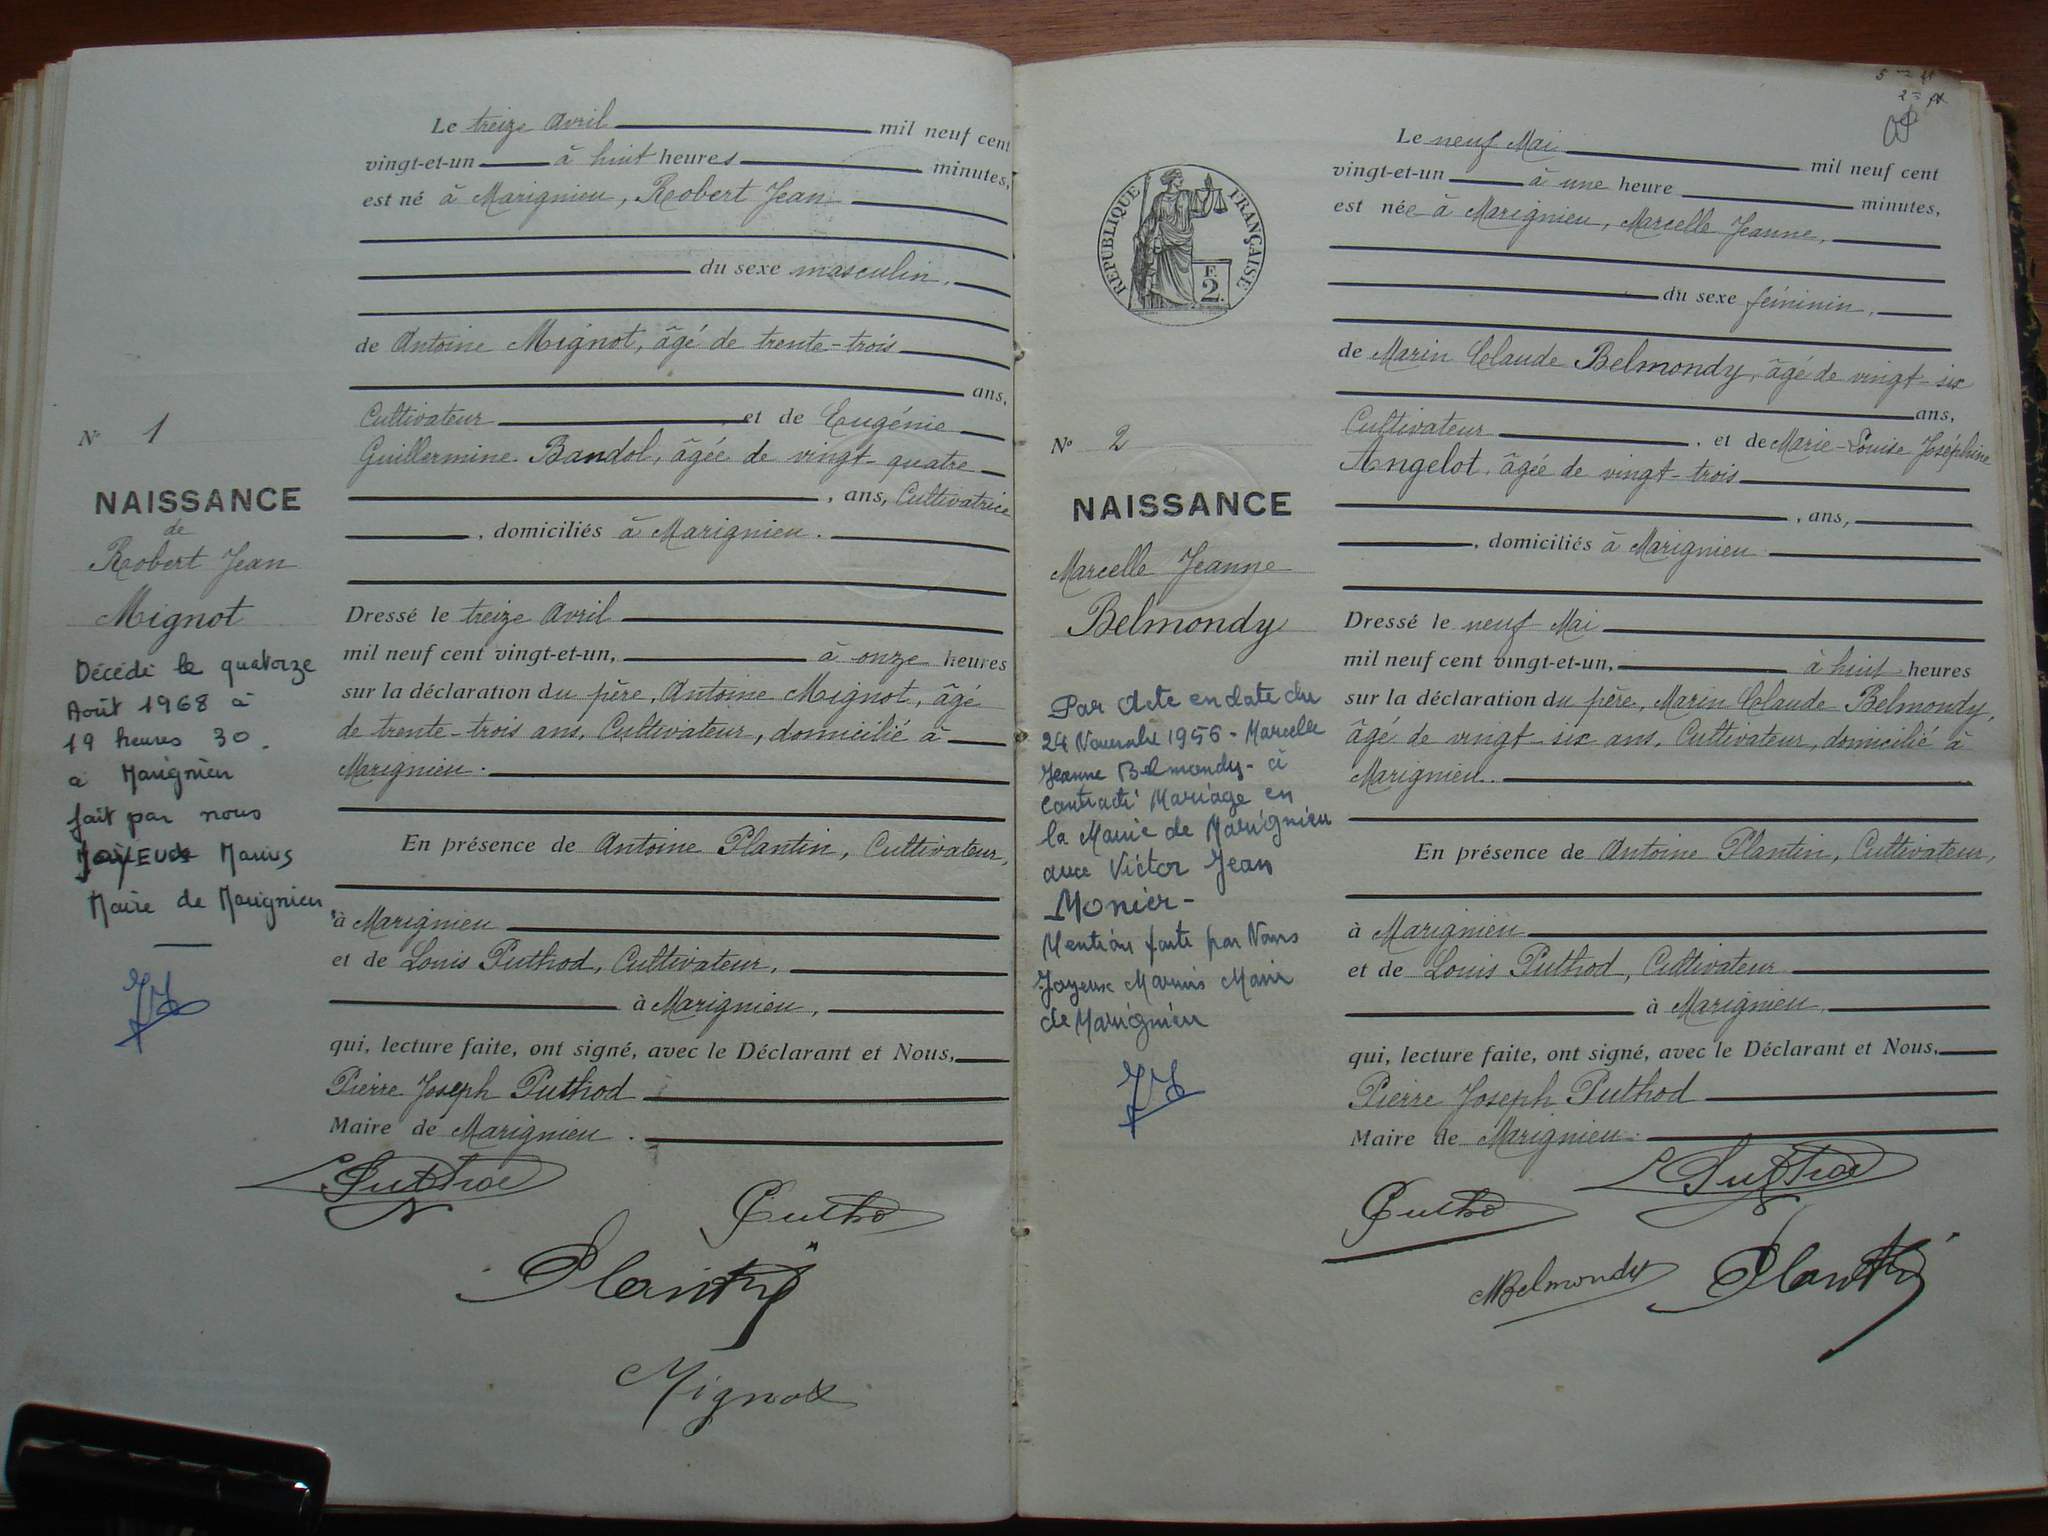 Le treize Avril mil neuf cent
vingt-et-un à huit heures minutes,
est né à Marignieu, Robert Jean
du sexe masculin,
de Antoine Mignot, âgé de trente-trois
ans,
Cultivateur et de Eugénie
Guillermine Bandol, âgée de vingt-quatre
, ans, Cultivatrice
, domiciliés à Marignieu.
Dressé le treize Avril
mil neuf cent vingt-et-un, à onze heures
sur la déclaration du père, Antoine Mignot, âgé
de trente-trois ans, Cultivateur, domicilié à
Marignieu.
En présence de Antoine Plantin, Cultivateur,
à Marignieu
et de Louis Puthod, Cultivateur,
à Marignieu,
qui, lecture faite, ont signé, avec le Déclarant et Nous,
Pierre Joseph Puthod
Maire de Marignieu.
N° 1
NAISSANCE
de
Robert Jean
Mignot
Décédé le quatorze
Août 1968 à
19 heures 30
à Marignieu
fait par nous
Joyeux Marius
Maire de Marignieu
Puthod
Plantin
Mignot
Le neuf Mai mil neuf cent
vingt-et-un à une heure minutes,
est née à Marignieu, Marcelle Jeanne,
du sexe féminin,
de Marin Claude Belmondy, âgé de vingt-six
ans,
Cultivateur , et de Marie-Louise Joséphine
Angelot, âgée de vingt-trois
, ans,
, domiciliés à Marignieu
Dressé le neuf Mai
mil neuf cent vingt-et-un, à huit heures
sur la déclaration du père, Marin Claude Belmondy,
âgé de vingt-six ans, Cultivateur, domicilié à
Marignieu.
En présence de Antoine Plantin, Cultivateur,
à Marignieu
et de Louis Puthod, Cultivateur
à Marignieu,
qui, lecture faite, ont signé, avec le Déclarant et Nous,
Pierre Joseph Puthod
Maire de Marignieu.
RÉPUBLIQUE FRANÇAISE
F.
2.
N° 2
NAISSANCE
Marcelle Jeanne
Belmondy
Par Acte en date du
24 Novembre 1956 - Marcelle
Jeanne Belmondy - a
contracté Mariage en
la Mairie de Marignieu
avec Victor Jean
Monier -
Mention faite par Nous
Joyeux Marius Maire
de Marignieu
Puthod
MBelmondy
Plantin